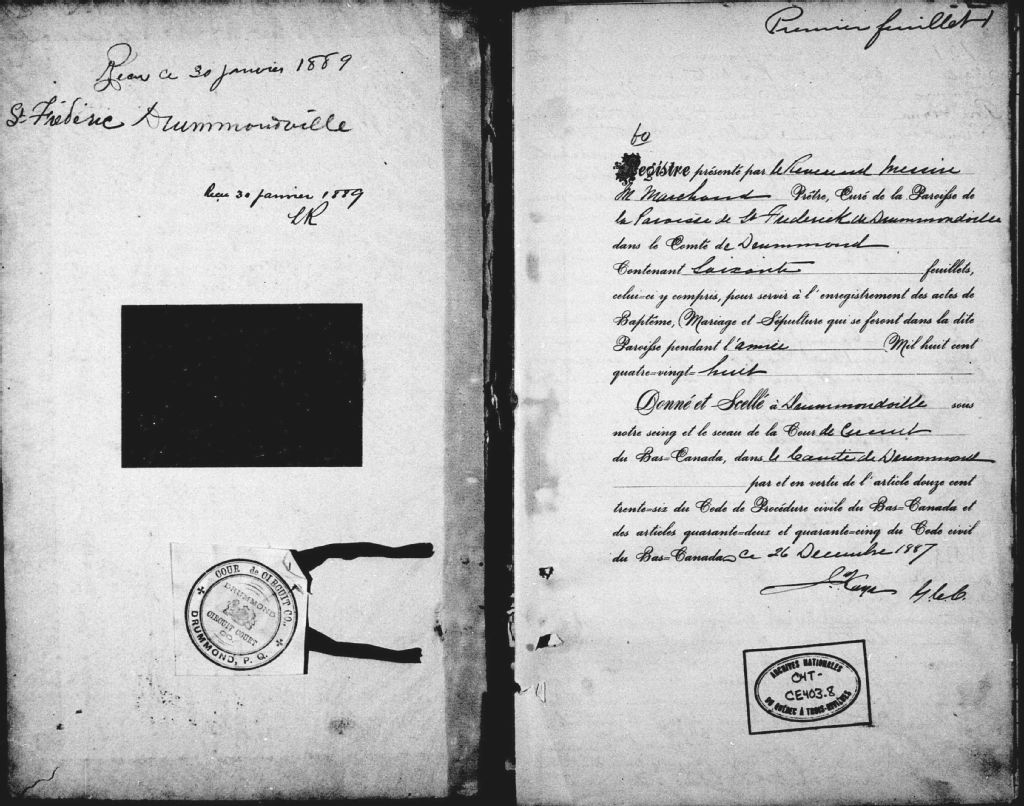 Reçu ce 30 janvier 1889
St Frédéric Drummondville
Reçu 30 janvier 1889
COUR de CIRCUIT CO.
DRUMMOND, P. Q.
DRUMMOND
CIRCUIT COURT
CO.
Premier feuillet 1
60
Registre présenté par le Reverend Messire
M Marchand Prêtre, Curé de la Paroisse de
la Paroisse de St Frederick de Drummondville
dans le Comté de Drummond
Contenant Soixante feuillets,
celui-ci y compris, pour servir à l'enregistrement des actes de
Baptême, Mariage et Sépulture qui se feront dans la dite
Paroisse pendant l'année Mil huit cent
quatre-vingt-huit
Donné et Scellé à Drummondville sous
notre seing et le sceau de la Cour de Circuit
du Bas-Canada, dans le Comté de Drummond
par et en vertu de l'article douze cent
trente-six du Code de Procédure civile du Bas-Canada et
des articles quarante-deux et quarante-cinq du Code civil
du Bas-Canada, ce 26 Decembre 1887
ARCHIVES NATIONALES
CHT-
CE403.8
DU QUÉBEC À TROIS-RIVIÈRES